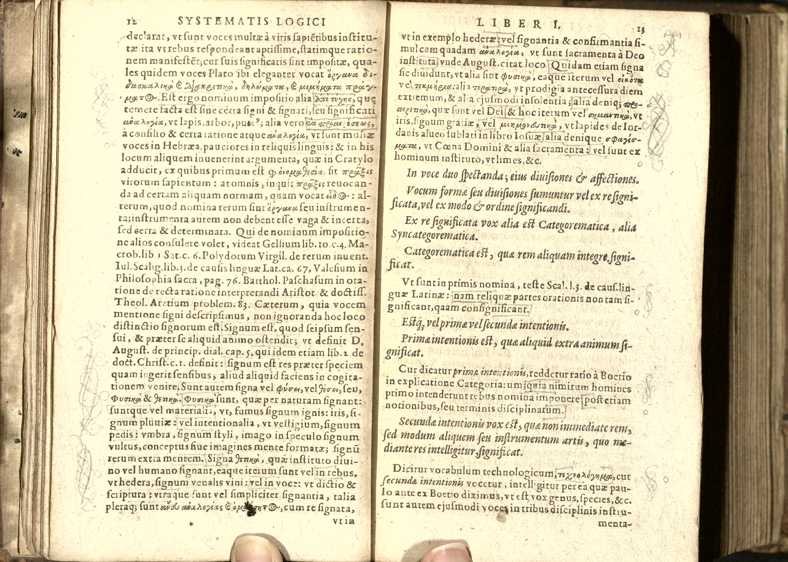 12 SYSTEMATIS LOGICI
declarat, vt sunt voces multæ à viris sapiētibus institu-
tæ ita vt rebus respondeant aptissime, statimque ratio-
nem manifestēt, cur suis significatis sint impositæ, qua-
les quidem voces Plato ibi eleganter vocat ὄργανα δι-
δασκαλικὰ & δηλώματα, & μιμήματα πραγμ-
μάτων. Est ergo nominum impositio alia quæ
temere facta est sine certa signi & signati, seu significati
ἀναλογία, vt lapis, arbor, alia vero
à consilio & certa ratione atque ἀναλογία, vt sunt multæ
voces in Hebræa, pauciores in reliquis linguis: & in his
locum aliquem inuenerint argumenta, quæ in Cratylo
adducit, ex quibus primum est sit
virorum sapientum: at omnis, inquit reuocan-
da ad certam aliquam normam, quam vocat al-
terum, quod nomina rerum sint ὄργανα seu instrumen-
ta; instrumenta autem non debent esse vaga & incerta,
sed certa & determinata. Qui de nominum impositio-
ne alios consulere volet, videat Gellium lib. 10. c. 4. Mac-
rob. lib. 1 Sat. c. 6. Polydorum Virgil. de rerum inuent.
Iul. Scalig. lib. 3. de causis linguæ Lat. ca. 67, Valesium in
Philosophia sacra, pag. 76. Barthol. Paschasum in ora-
tione de recta ratione interpretandi Aristot. & doctiss.
Theol. problem. 83. Cæterum, quia vocem
mentione signi descripsimus, non ignoranda hoc loco
distinctio signorum est. Signum est, quod seipsum sen-
sui, & præter se aliquid animo ostendit; vt definit D.
August. de princip. dial. cap. 5, qui idem etiam lib. 2. de
doct. Christ. c. 1. definit: signum est res præter speciem
quam ingerit sensibus, aliud aliquid faciens in cogita-
tionem venire. Sunt autem signa vel φύσει, vel θέσει, seu,
φυσικὰ & θετικὰ. Φυσικὰ sunt, quæ per naturam signant:
suntque vel materialia, vt, fumus signum ignis: iris, si-
gnum pluuiæ: vel intentionalia, vt vestigium, signum
pedis: vmbra, signum styli, imago in speculo signum
vultus, conceptus siue imagines mente formatæ; signum
rerum extra mentem. Signa θετικὰ, quæ instituto diui-
no vel humano signant, eaque iterum sunt vel in rebus,
vt hedera, signum venalis vini: vel in voce: vt dictio &
scriptura: vtraque sunt vel simpliciter signantia, talia
pleraq; sunt ἄνευ ἀναλογίας & cum re signata,
vt in
LIBER I. 13
vt in exemplo hederæ: vel signantia & confirmantia si-
mul eam quadam ἀναλογία, vt sunt sacramenta à Deo
instituta vnde August. citat. loco Quidam etiam signa
sic diuidunt, vt alia sint φυσικὰ, eaque iterum vel εἰκότα
vel τεκμήρια: alia vt prodigia antecessura diem
extremum, & alia ejusmodi insolentia; alia deniq;
quæ sunt vel Dei & hoc iterum vel σημαντικὰ, vt
iris, signum gratiæ, vel vt lapides de Ior-
danis alueo sublati in libro Iosuæ, alia denique
vt Cœna Domini & alia sacramenta: vel sunt ex
hominum instituto, vt limes, &c.
In voce duo spectanda; eius diuisiones & affectiones.
Vocum formæ seu diuisiones sumuntur vel ex re signi-
ficata, vel ex modo & ordine significandi.
Ex re significata vox alia est Categorematica, alia
Syncategorematica.
Categorematica est, quæ rem aliquam integre signi-
ficat.
Vt sunt in primis nomina, teste Scal. l. 3. de caus. lin-
guæ Latinæ: nam reliquæ partes orationis non tam si-
gnificant, quam consignificant.
Estq; vel primæ vel secundæ intentionis.
Primæ intentionis est, quæ aliquid extra animum si-
gnificat.
Cur dicatur primæ intentionis, redditur ratio à Boetio
in explicatione Categoriarum: quia nimirum homines
primo intenderunt rebus nomina imponere, postea
notionibus, seu terminis disciplinarum.
Secundæ intentionis vox est, quæ non immediate rem,
sed modum aliquem seu instrumentum artis, quo me-
diante res intelligitur, significat.
Dicitur vocabulum technologicum, τεχνολόγημα, cur
secundæ intentionis vocetur, intelligitur per ea quæ pau-
lo ante ex Boetio diximus, vt est vox genus, species, &c.
sunt autem ejusmodi voces in tribus disciplinis instru-
menta-